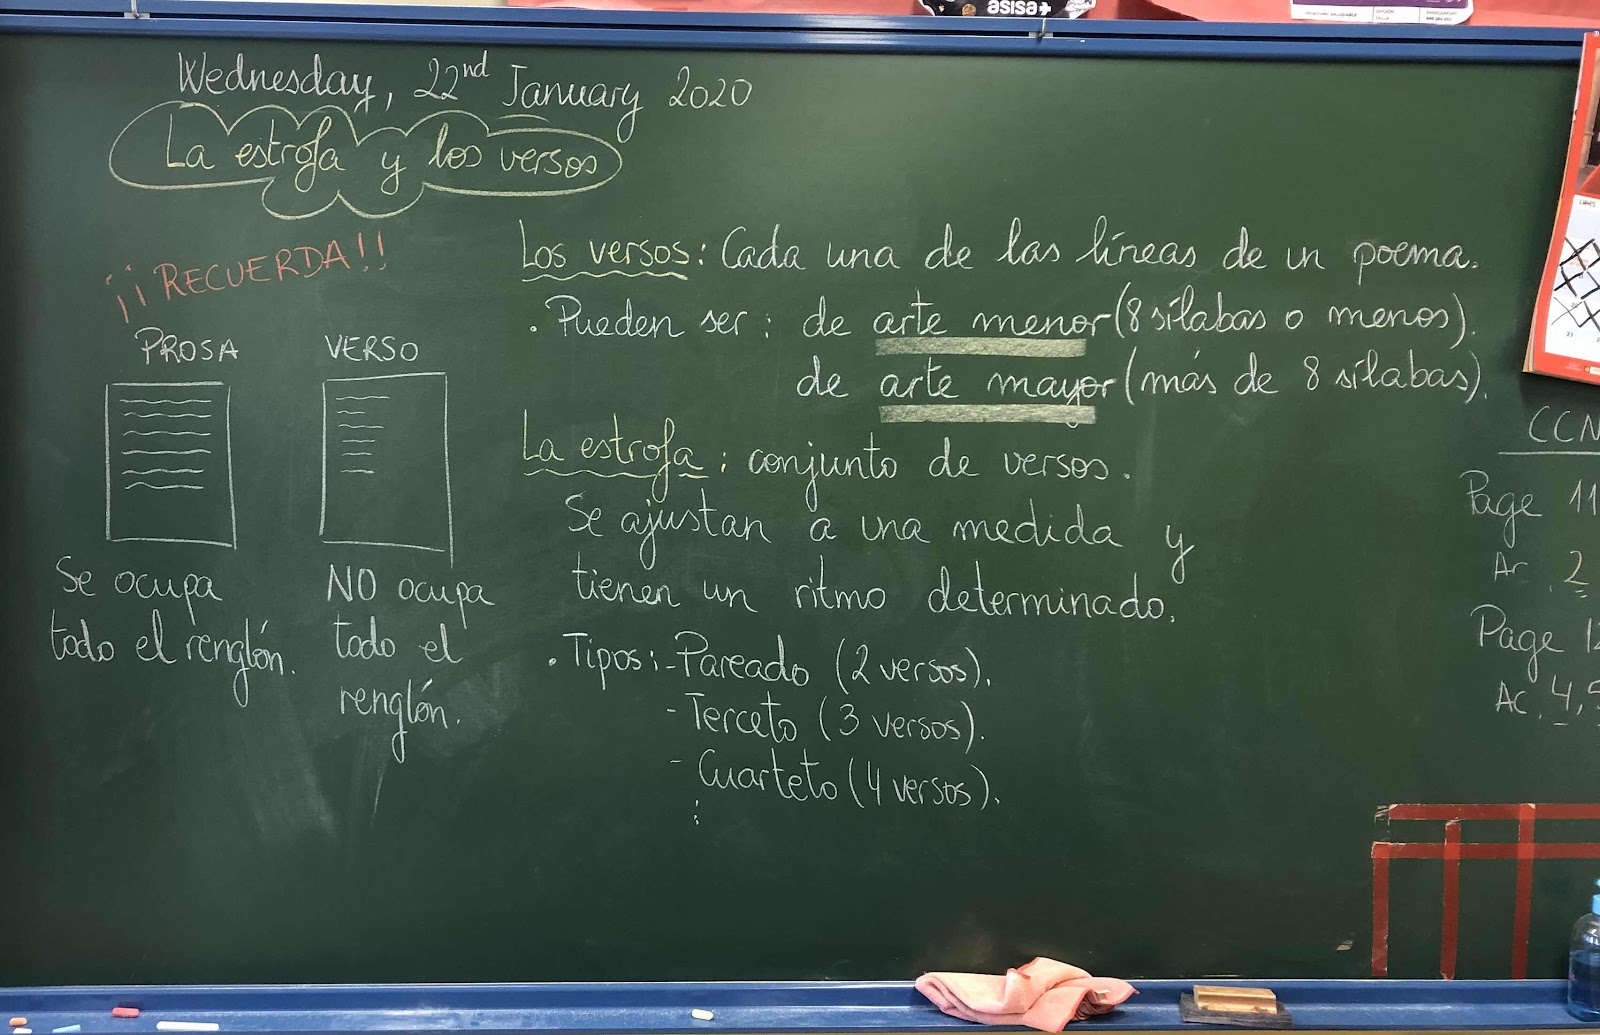 asisa+
Wednesday, 22nd January 2020
La estrofa y los versos
¡¡RECUERDA!!
PROSA
VERSO
Se ocupa
todo el renglón.
NO ocupa
todo el
renglón.
Los versos: Cada una de las líneas de un poema.
. Pueden ser: de arte menor (8 sílabas o menos).
de arte mayor (más de 8 sílabas).
La estrofa: conjunto de versos.
Se ajustan a una medida y
tienen un ritmo determinado.
. Tipos: - Pareado (2 versos).
- Terceto (3 versos).
- Cuarteto (4 versos).
CCN
Page 11
Ac. 2
Page 12
Ac. 4, 5